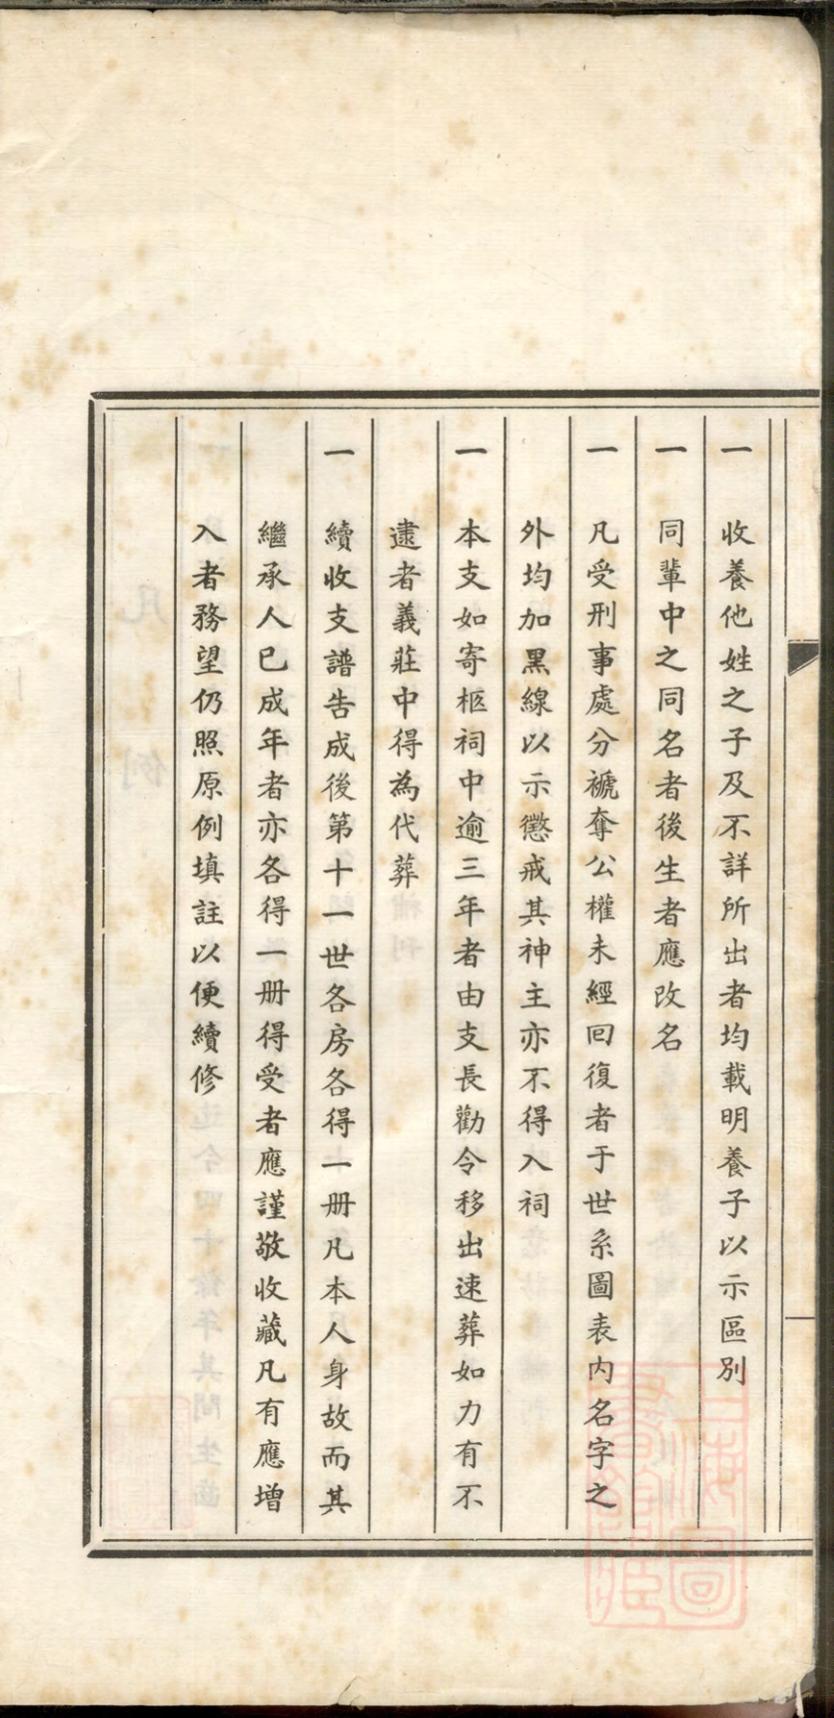 一 收養他姓之子及不詳所出者均載明養子以示區別
一 同輩中之同名者後生者應改名
一 凡受刑事處分褫奪公權未經回復者于世系圖表內名字之
外均加黑線以示懲戒其神主亦不得入祠
一 本支如寄柩祠中逾三年者由支長勸令移出速葬如力有不
逮者義莊中得為代葬
一 續收支譜告成後第十一世各房各得一册凡本人身故而其
繼承人已成年者亦各得一册得受者應謹敬收藏凡有應增
入者務望仍照原例填註以便續修